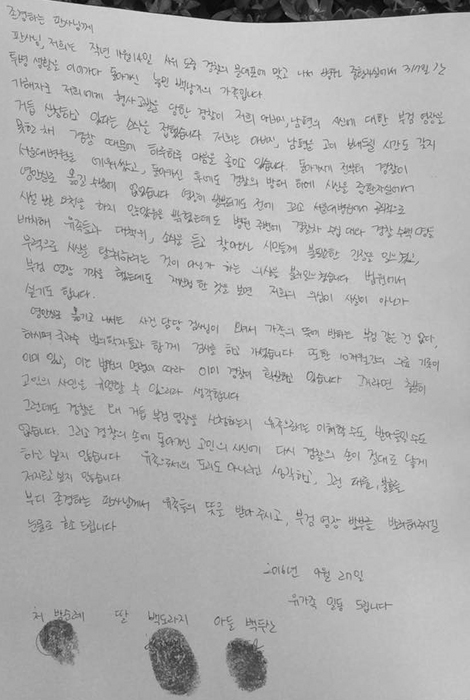 존경하는 판사님께
판사님, 저희는 작년 11월14일 경찰의 물대포에 맞고 나서 병원 중환자실에서 317일 간
투병 생활을 이어가다 돌아가신 농민 백남기의 가족입니다
가해자로 저희에게 형사고발을 당한 경찰이 저희 아버지, 남편의 시신에 대한 부검 영장을
거듭 신청하고 있다는 소식을 접했습니다. 저희는 아버지, 남편을 고이 보내드릴 시간도 갖지
못한 채 경찰 때문에 하루하루 마음을 졸이고 있습니다. 돌아가시기 전부터 경찰이
서울대병원을 에워쌌고, 돌아가신 후에도 경찰의 방해 하에 시신을 중환자실에서
영안실로 옮길 수밖에 없었습니다. 영장이 발부되기도 전에 그리고 서울대병원에서 공식으로
시설 보호 요청을 하지 않았음을 밝혔는데도 병원 주변에 경찰차 수십 대와 경찰 수백 명을
배치해 유족들과 대책위, 소식을 듣고 찾아오신 시민들께 불필요한 긴장을 일으켰고,
무력으로 시신을 탈취하려는 것이 아닌가 하는 의심을 불러일으켰습니다. 법원에서
부검 영장 기각을 했는데도 재신청 한 것을 보면 저희의 의심이 사실이 아닌가
싶기도 합니다.
영안실로 옮기고 나서는 사건 담당 검사님이 와서 가족의 뜻에 반하는 부검 같은 건 없다,
하시며 국과수 법의학자들과 함께 검시를 하고 가셨습니다. 또한 10개월간의 의료 기록이
이미 있고, 이는 법원의 명령에 따라 이미 경찰이 확보하고 있습니다. 그러하면 충분히
고인의 사인은 규명할 수 있으리라 생각합니다
그런데도 경찰은 왜 거듭 부검 영장을 신청하는지 유족으로서는 이해할 수도, 받아들일 수도
없습니다. 그리고 경찰의 손에 돌아가신 고인의 시신에 다시 경찰의 손이 절대로 닿게
하고 싶지 않습니다. 유족으로서의 도리도 아니라고 생각하고, 그런 패륜, 불효를
저지르고 싶지 않습니다.
부디 존경하는 판사님께서 유족들의 뜻을 받아 주시고, 부검 영장 발부를 반려해주시길
눈물로 호소 드립니다
2016년 9월 27일
유가족 일동 드립니다
처 박순례 딸 백도라지 아들 백두산